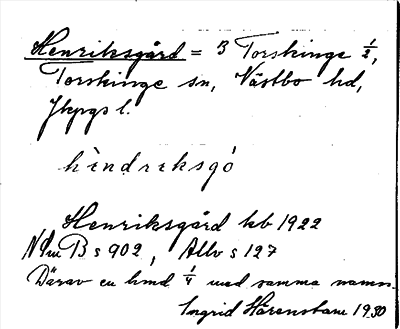 Henriksgård = 3 Torskinge 1/2,
Torskinge sn, Västbo hd,
Jkpgs l.
hèndrɩksgó
Henriksgård kb 1922
B s 902, Allv s 127
Därav en hmd 1/4 med samma namn.
Ingrid Härenstam 1930